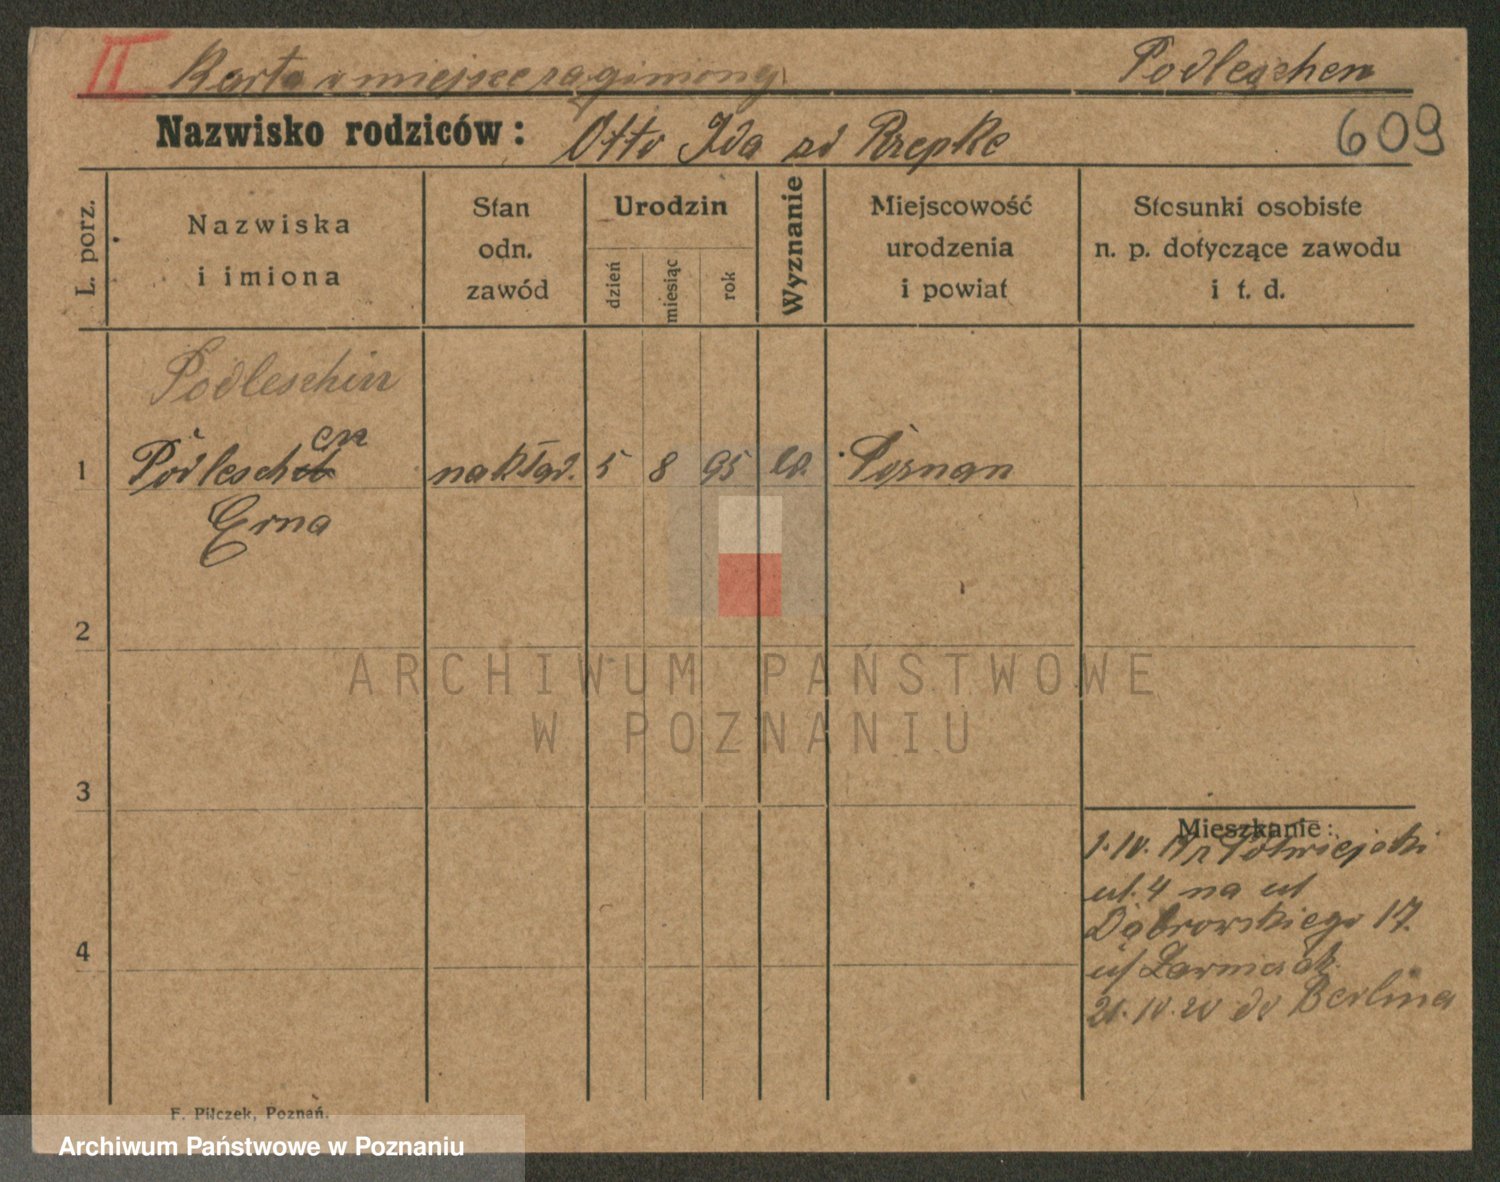 II Karta w miejsce zaginionej Podleschen
Nazwisko rodziców: Otto Ida zd Rzepke 609
L. porz.
Nazwiska
i imiona
Stan
odn.
zawód
Urodzin
dzień
miesiąc
rok
Wyznanie
Miejscowość
urodzenia
i powiat
Stosunki osobiste
n. p. dotyczące zawodu
i t. d.
Podleschin
en
1 Podlesch nakład. 5 8 95 Poznan
Erna
2
ARCHIWUM PAŃSTWOWE
W POZNANIU
3
Mieszkanie:
1.IV. z Półwiejski
ul. 4 na ul
Dąbrowskiego 17.
u/
21.IV.20 do Berlina
4
F. Pilczek, Poznań.
Archiwum Państwowe w Poznaniu